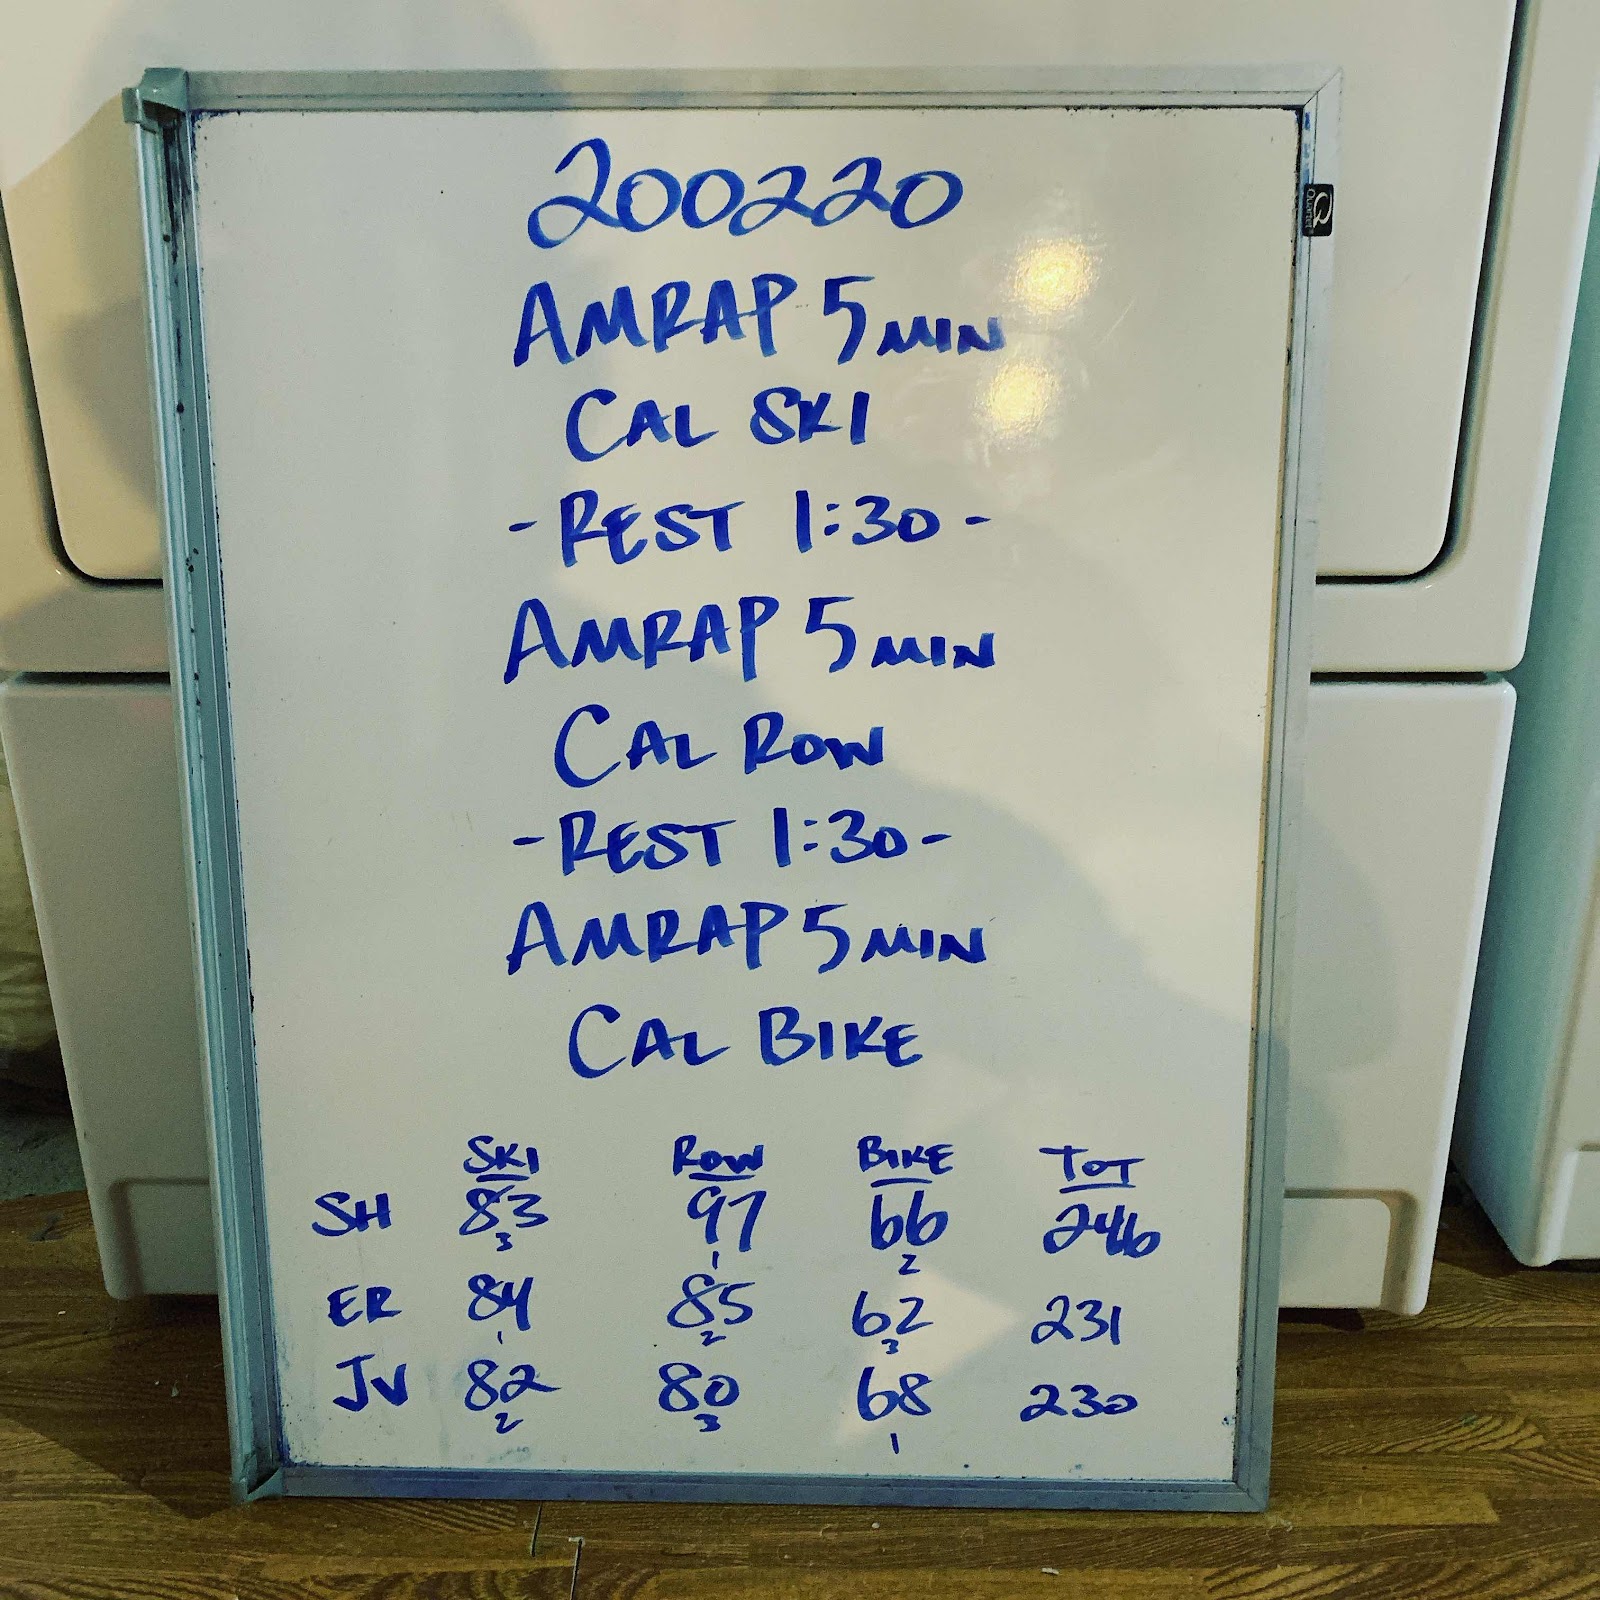 200220
AMRAP 5 MIN
CAL SKI
- REST 1:30 -
AMRAP 5 MIN
CAL ROW
- REST 1:30 -
AMRAP 5 MIN
CAL BIKE
SKI ROW BIKE TOT
SH 83 97 66 246
3 1 2
ER 84 85 62 231
1 2 3
JV 82 80 68 230
2 3 1
Quartet